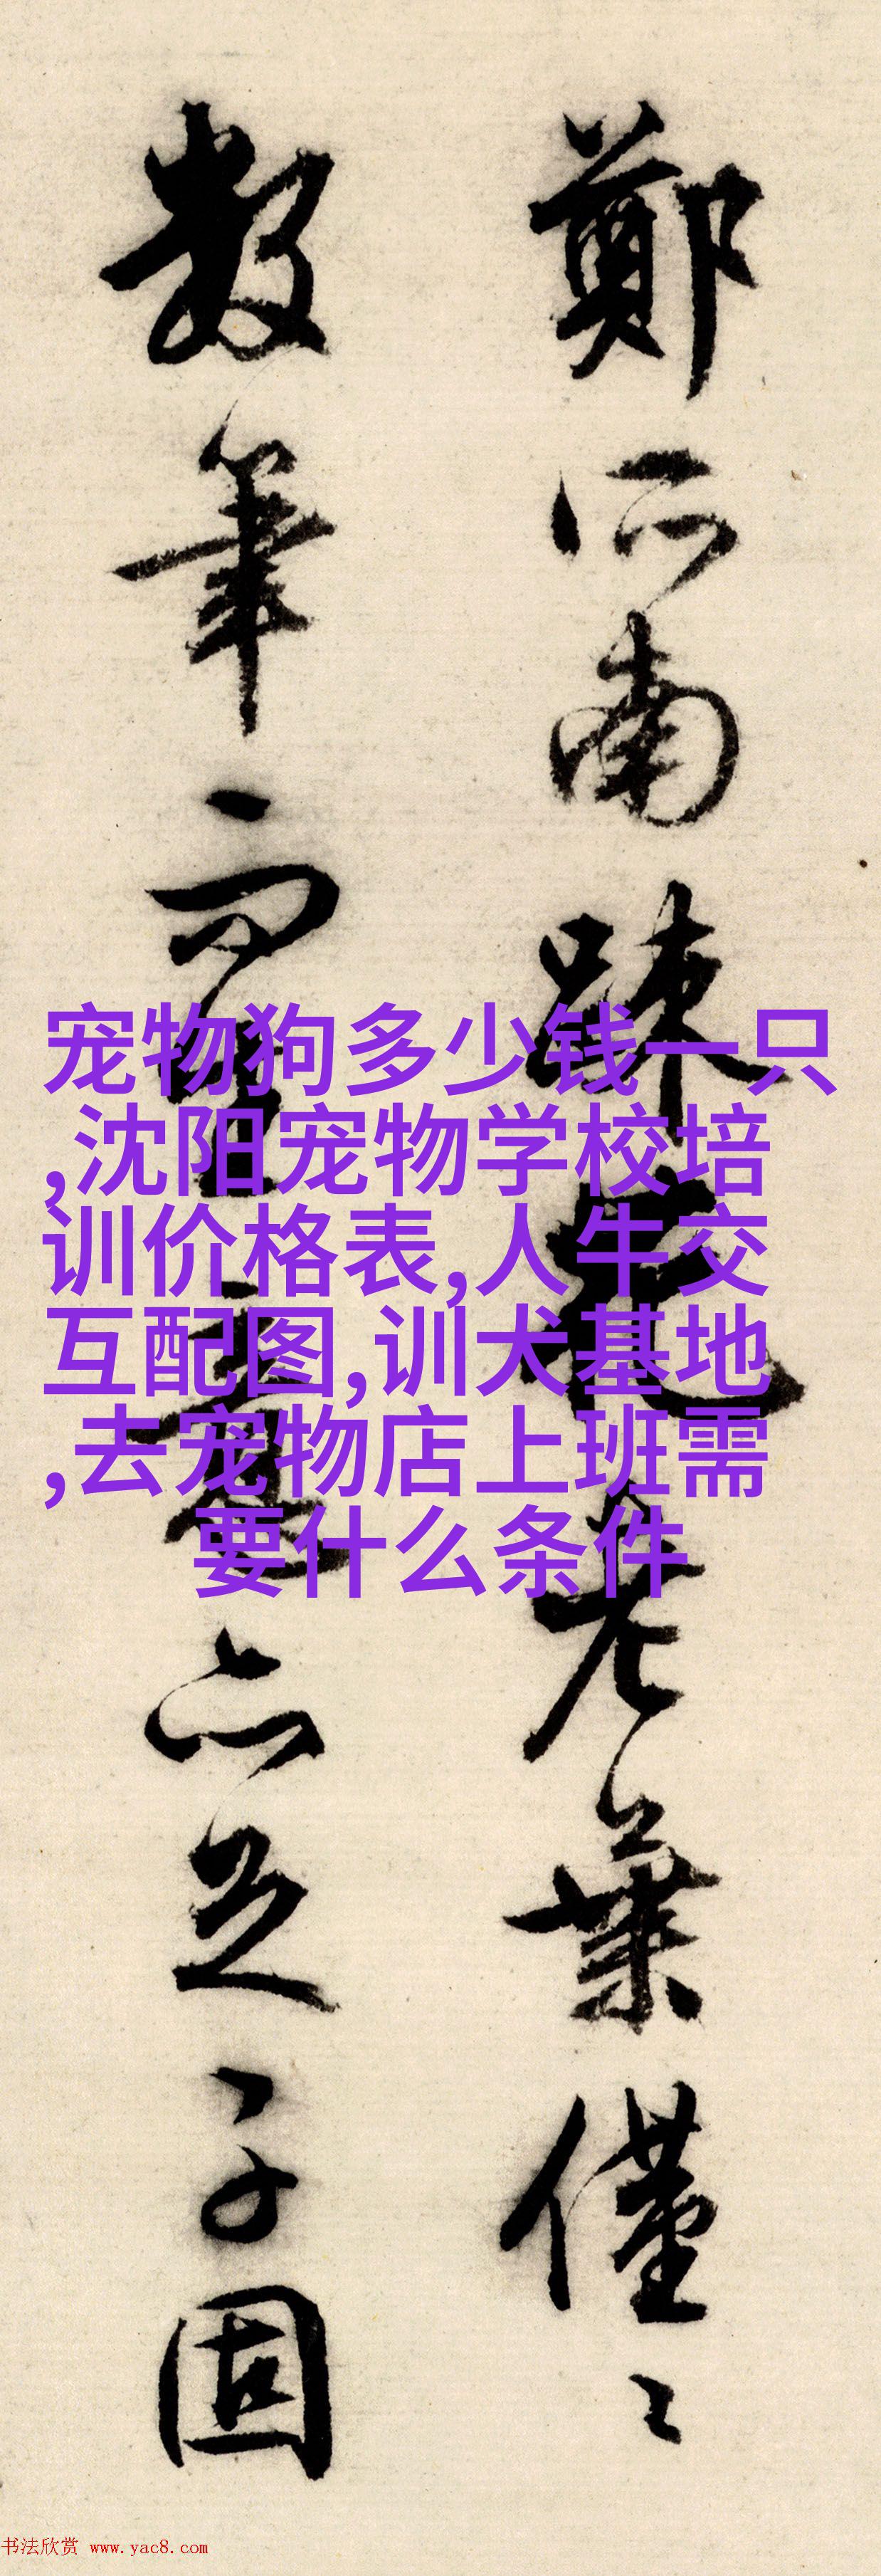 鄭所南疎花老葉僅〻
數筆而生意亦足子固
宠物狗多少钱一只
,沈阳宠物学校培
训价格表,人牛交
互配图,训犬基地
,去宠物店上班需
要什么条件
书法欣赏 www.yac8.com